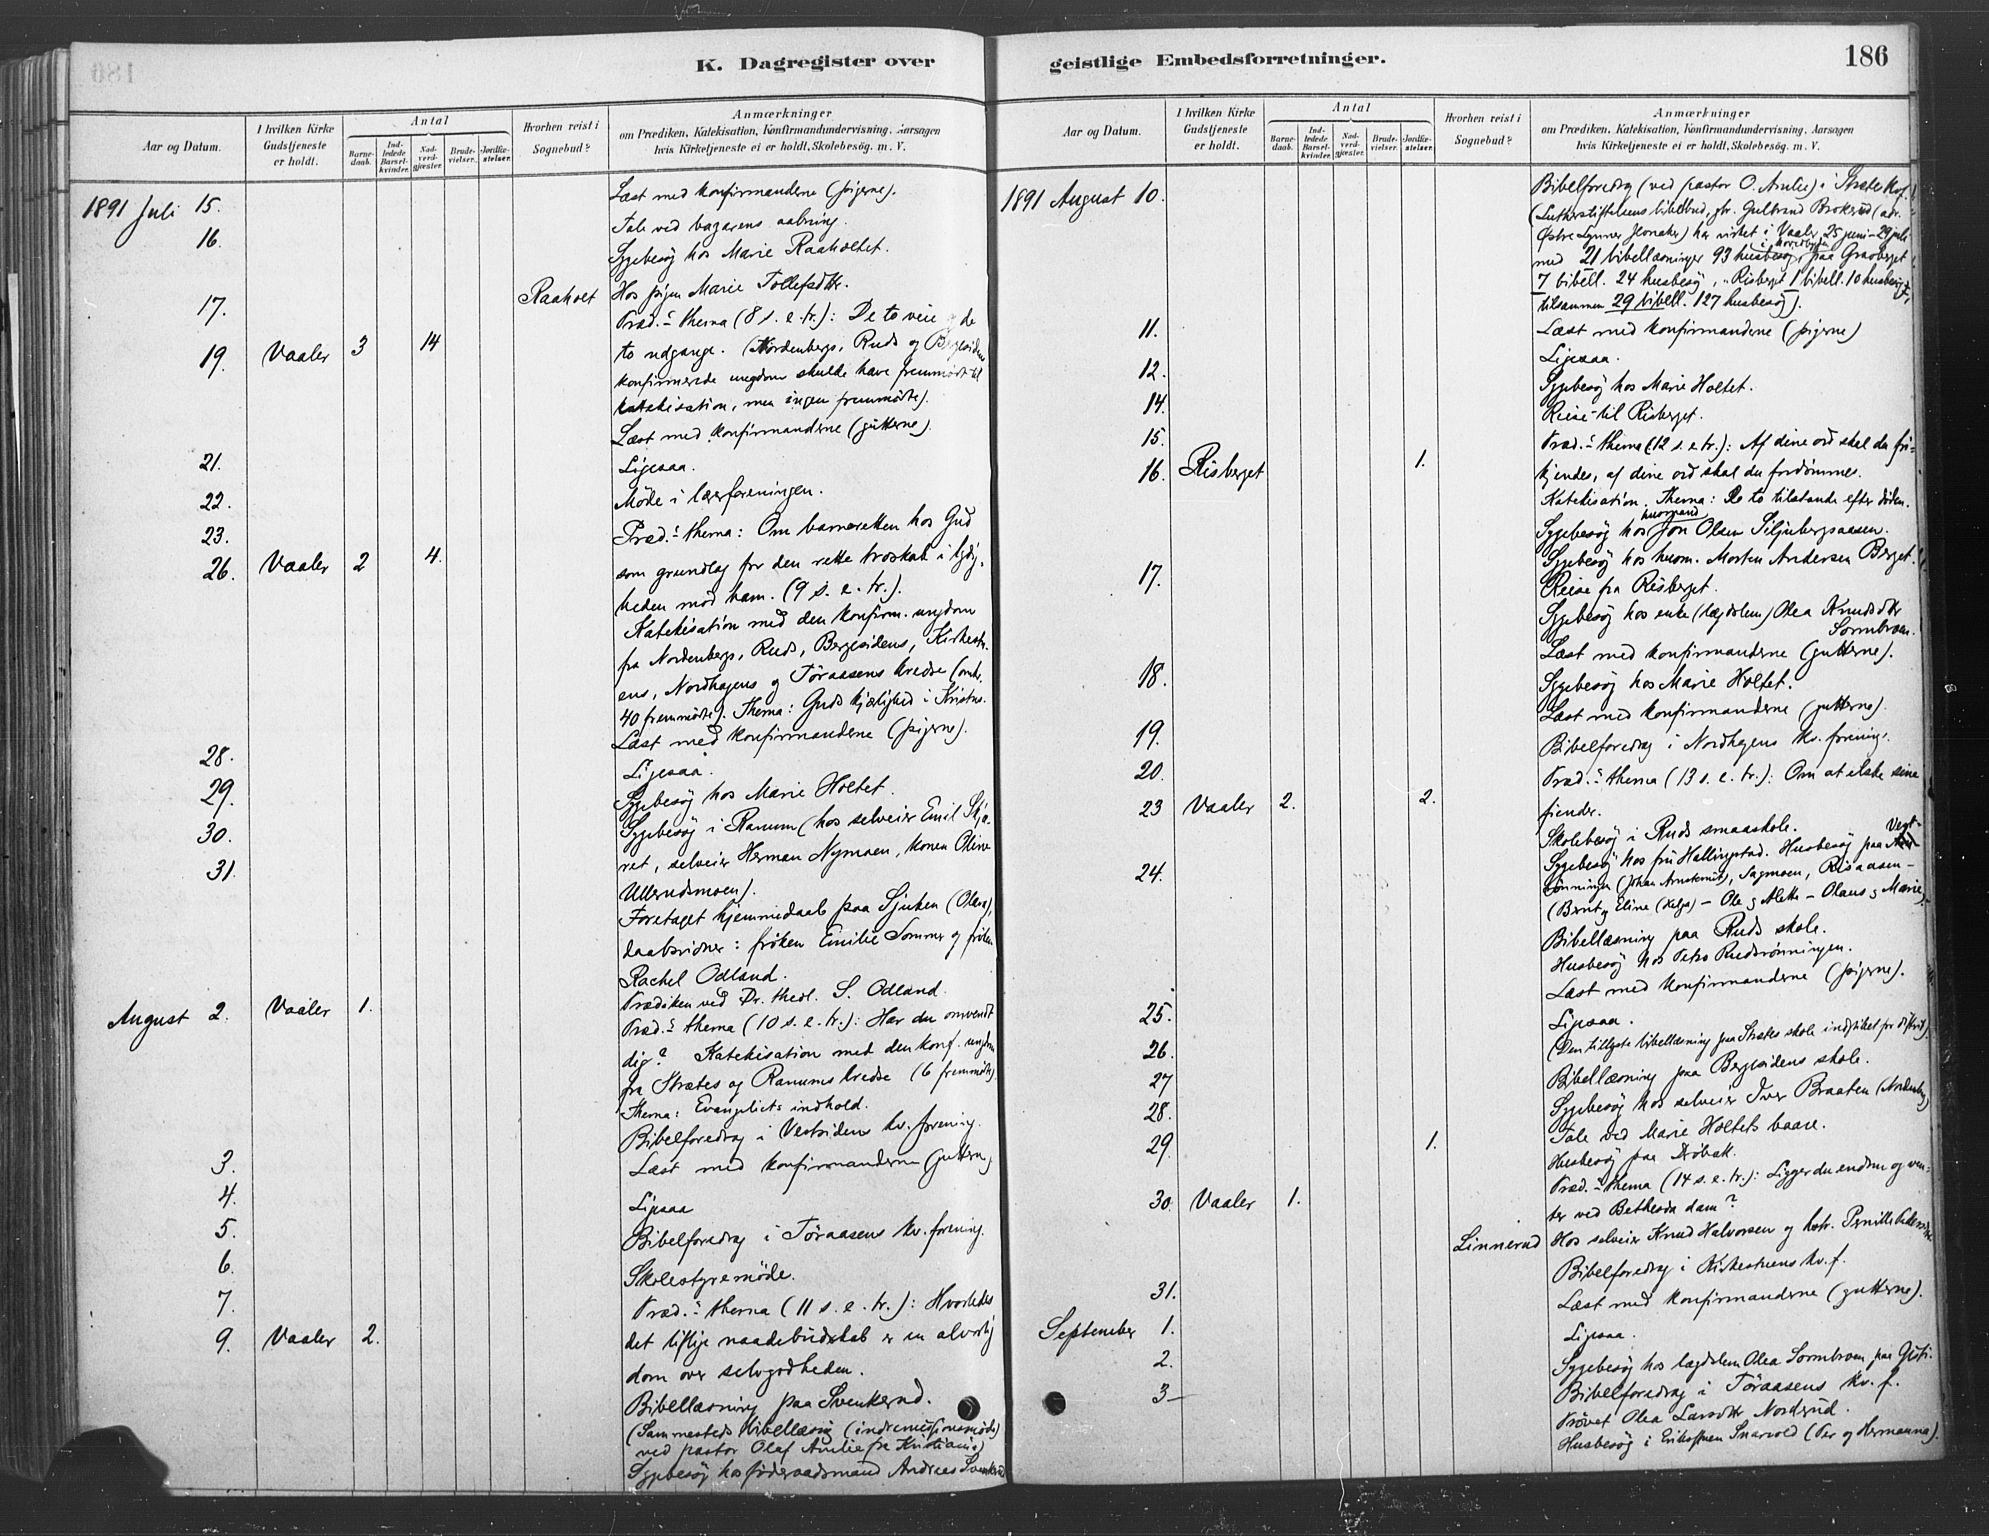 K. Dagregister over
Aar og Datum.
I hvilken Kirke Gudstjeneste er holdt.
Antal
Barnedaab.
Indledede Barselkvinder.
Nadverdgjester.
Brudevielser.
Jordfæstelser.
Hvorhen reist i Sognebud?
Anmærkninger
om Prædiken, Katekisation, Konfirmandundervisning, Aarsagen
hvis Kirketjeneste ei er holdt, Skolebesøg. m. V.
1891 Juli 15. Læst med konfirmanderne (pigerne).
16. Tale ved bazarens aabning.
Sygebesøg hos Marie Raaholtet.
17. Raaholt Hos pigen Marie Tollefsdtr.
19. Vaaler 3 14 Præd.s thema (8 s. e. tr.): De to veie og de
to udgange. (Nordenbergs, Ruds og Bergesidens
konfirmerede ungdom skulde have fremmødt til
katekisation, men ingen fremmødte).
21. Læst med konfirmanderne (gutterne).
22. Ligesaa.
23. Møde i lærerforeningen.
26. Vaaler 2 4. Præd.s thema: Om barneretten hos Gud
som grundlag for den rette troskab i lydig-
heden mod ham. (9 s. e. tr.).
Katekisation med den konfirm. ungdom
fra Nordenbergs, Ruds, Bergesidens, Kirkestu-
ens, Nordhagens og Toraasens kredse (omtr.
40 fremmødte). Thema: Guds kjærlighed i Kristus.
28. Læst med konfirmanderne (pigerne).
29. Ligesaa.
30. Sygebesøg hos Marie Holtet.
31. Sygebesøg i Ranum (hos selveier Emil Skjæ-
ret, selveier Herman Nymoen, konen Oline
Ullerudsmoen).
Foretaget hjemmedaab paa Sjuken (Olava),
daabsvidner: frøken Emilie Sommer og frøken
Rachel Odland.
August 2. Vaaler 1. Prædiken ved Dr. theol. S. Odland.
Præd.s thema (10 s. e. tr.): Har du omvendt
dig? Katekisation med den konf. ungdom
fra Strætes og Ranums kredse (6 fremmødte).
Thema: Evangeliets indhold.
3. Bibelforedrag i Vestsidens kv. forening.
4. Læst med konfirmanderne (gutterne)
5. Ligesaa
6. Bibelforedrag i Toraasens kv. forening.
7. Skolestyremøde.
9. Vaaler 2. Præd.s thema (11 s. e. tr.): Hvorledes
det liflige naadebudskab er en alvorlig
dom over selvgodheden.
Bibellæsning paa Svenkerud.
(Sammesteds bibellæsng (indremissionsmøde)
ved pastor Olaf Amlie fra Kristiania)
Sygebesøg hos føderaadsmand Andreas Svenkerud
geistlige Embedsforretninger.
186
Aar og Datum.
I hvilken Kirke Gudstjeneste er holdt.
Antal
Barnedaab.
Indledede Barselkvinder.
Nadverdgjester.
Brudevielser.
Jordfæstelser.
Hvorhen reist i Sognebud?
Anmærkninger
om Prædiken, Katekisation, Konfirmandundervisning, Aarsagen
hvis Kirketjeneste ei er holdt, Skolebesøg. m. V.
1891 August 10. Bibelforedrag (ved pastor O. Amlie) i Stræte
(Lutherstiftelsens bibelbud, hr. Gulbrand Brokerud (adr.
Østre Lynner Jevnaker) har virket i Vaaler 25 juni-29 juli
med 21 bibellæsninger 93 husbesøg, paa Graaberget
7 bibell. 24 husbesøg, Risberget 1 bibell. 10 husbesøg,
tilsammen 29 bibell. 127 husbesøg).
11. Læst med konfirmanderne (pigerne)
12. Ligesaa.
14. Sygebesøg hos Marie Holtet.
15. Reise til Risberget.
16. Risberget 1. Præd.s thema (12 s. e. tr.): Af dine ord skal du fri-
kjendes, af dine ord skal du fordømmes.
Katekisation. Thema: De to tilstande efter døden.
Sygebesøg hos husmand Jon Olsen Siljubergaasen.
17. Sygebesøg hos husm. Morten Andersen Berget.
Reise fra Risberget.
Sygebesøg hos enke (lægdslem) Olea Knudsdtr
Sormbroen.
18. Læst med konfirmanderne (gutterne).
Sygebesøg hos Marie Holtet.
19. Læst med konfirmanderne (gutterne).
20. Bibelforedrag i Nordhagens kv. forening.
23 Vaaler 2. 2. Præd.s thema (13 s. e. tr.): Om at elske sine
fiender.
24. Skolebesøg i Ruds smaaskole.
Sygebesøg hos fru Hallingstad. Husbesøg paa
(Johan), Sagmoen, Risaasen-
(Bernt og Eline - Ole og Alette - Olaus og Marie).
Bibellæsning paa Ruds skole.
Husbesøg hos Petro Rudsrønningen.
25. Læst med konfirmanderne (pigerne).
26. Ligesaa.
(Den tillyste bibellæsning paa Strætes skole indstillet for)
27 Bibellæsning paa Bergesidens skole.
28. Sygebesøg hos selveier Iver Braaten (Nordenberg)
29. 1. Tale ved Marie Holtets baare.
Husbesøg paa Drøbak.
30. Vaaler 1. Præd.s thema (14 s. e. tr.): Ligger du endnu og ven-
ter ved Bethesda dam?
Linnerud Hos selveier Knud Halvorsen og hstr. Pernille
31. Bibelforedrag i Kirkestuens kv. f.
September 1. Læst med konfirmanderne (gutterne).
2. Ligesaa.
3- Sygebesøg hos lægdslem Olea Sormbroen paa
Bibelforedrag i Toraasens kv. f.
Prøvet Olea Larsdtr Norderud.
Husbesøg i Snarvold (Per og Hermanna).